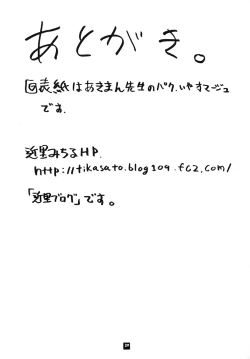 あとがき。
回表紙はあきまん先生のパク.いやオマージュ
です.
近里みちるHP.
http://tikasato.blog109.fc2.com/
「近里ブログ」です。